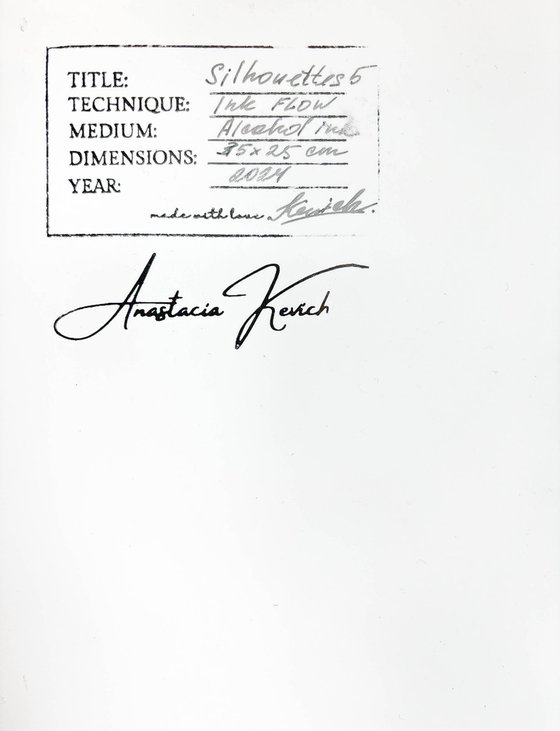 TITLE: Silhouettes 5
TECHNIQUE: Ink FLOW
MEDIUM: Alcohol ink
DIMENSIONS: 35x25 cm
YEAR: 2024
made with love Kevich.
Anastacia Kevich